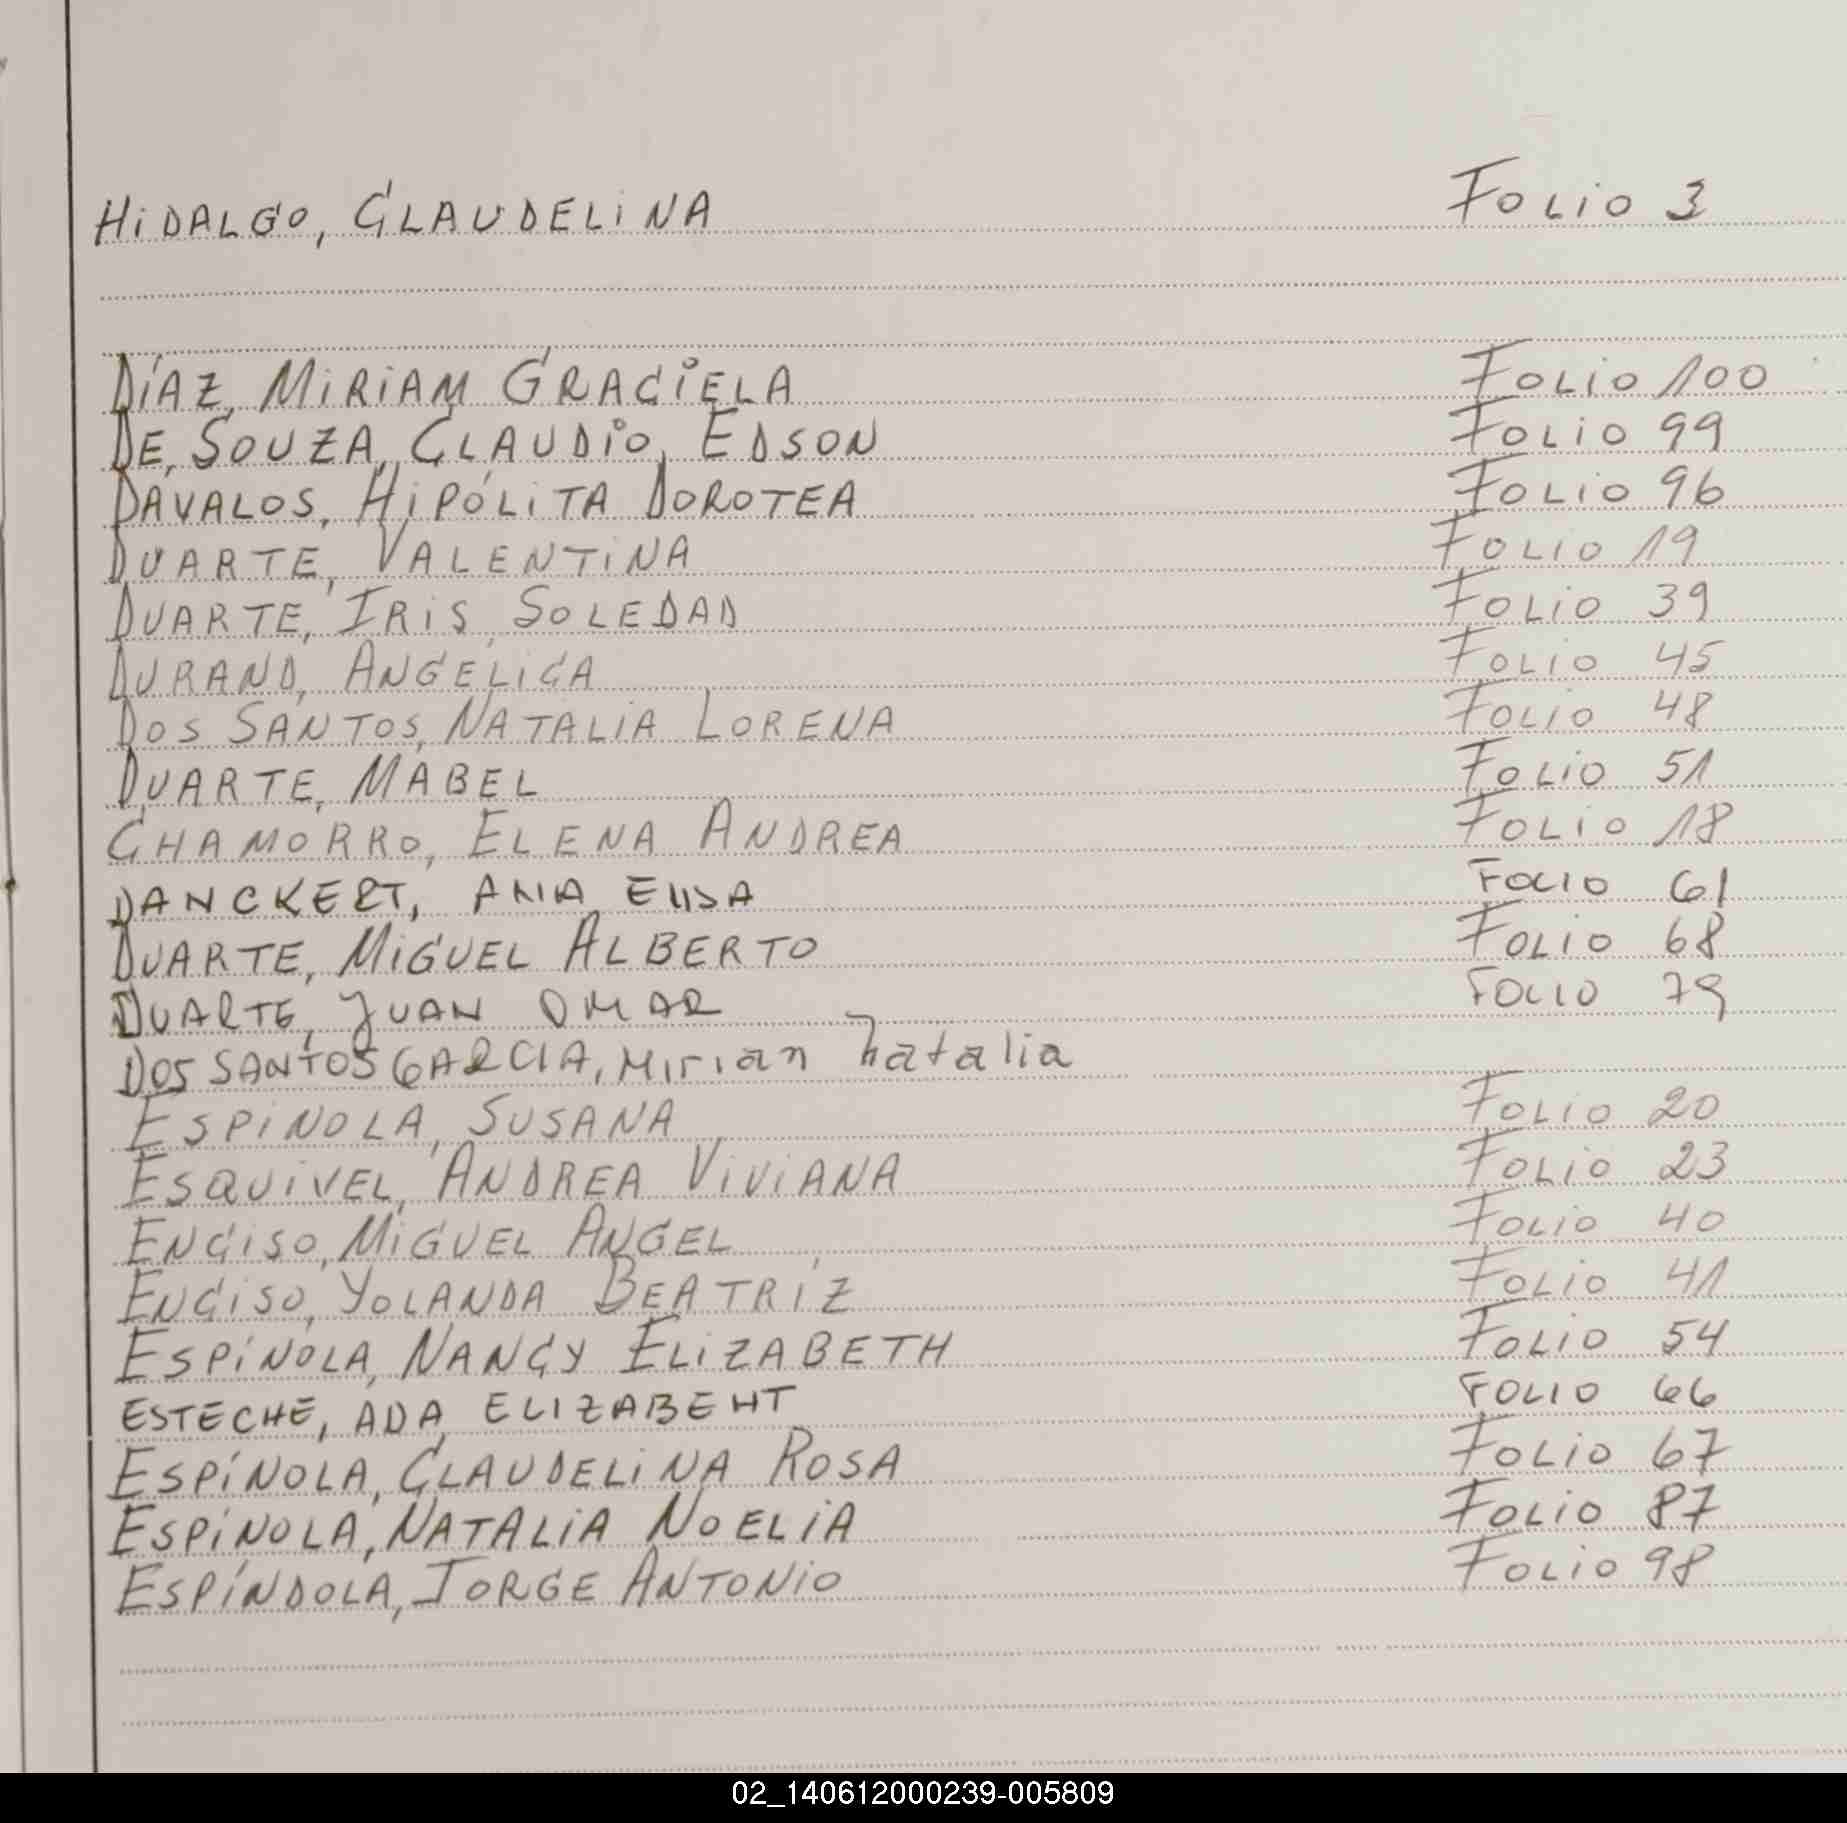 HIDALGO, CLAUDELINA FOLIO 3
DÍAZ, MIRIAM GRACIELA FOLIO 100
DE, SOUZA, CLAUDIO, EDSON FOLIO 99
DÁVALOS, HIPÓLITA DOROTEA FOLIO 96
DUARTE, VALENTINA FOLIO 19
DUARTE, IRIS SOLEDAD FOLIO 39
DURAND, ANGÉLICA FOLIO 45
DOS SANTOS, NATALIA LORENA FOLIO 48
DUARTE, MABEL FOLIO 51
CHAMORRO, ELENA ANDREA FOLIO 18
DANCKERT, ANA ELISA FOLIO 61
DUARTE, MIGUEL ALBERTO FOLIO 68
DUARTE, JUAN OMAR FOLIO 79
DOS SANTOS GARCIA, Mirian Natalia
ESPINOLA, SUSANA FOLIO 20
ESQUIVEL, ANDREA VIVIANA FOLIO 23
ENCISO, MIGUEL ANGEL FOLIO 40
ENCISO, YOLANDA BEATRÍZ FOLIO 41
ESPÍNOLA, NANCY ELIZABETH FOLIO 54
ESTECHE, ADA ELIZABEHT FOLIO 66
ESPÍNOLA, CLAUDELINA ROSA FOLIO 67
ESPÍNOLA, NATALIA NOELIA FOLIO 87
ESPÍNDOLA, JORGE ANTONIO FOLIO 98
02_140612000239-005809